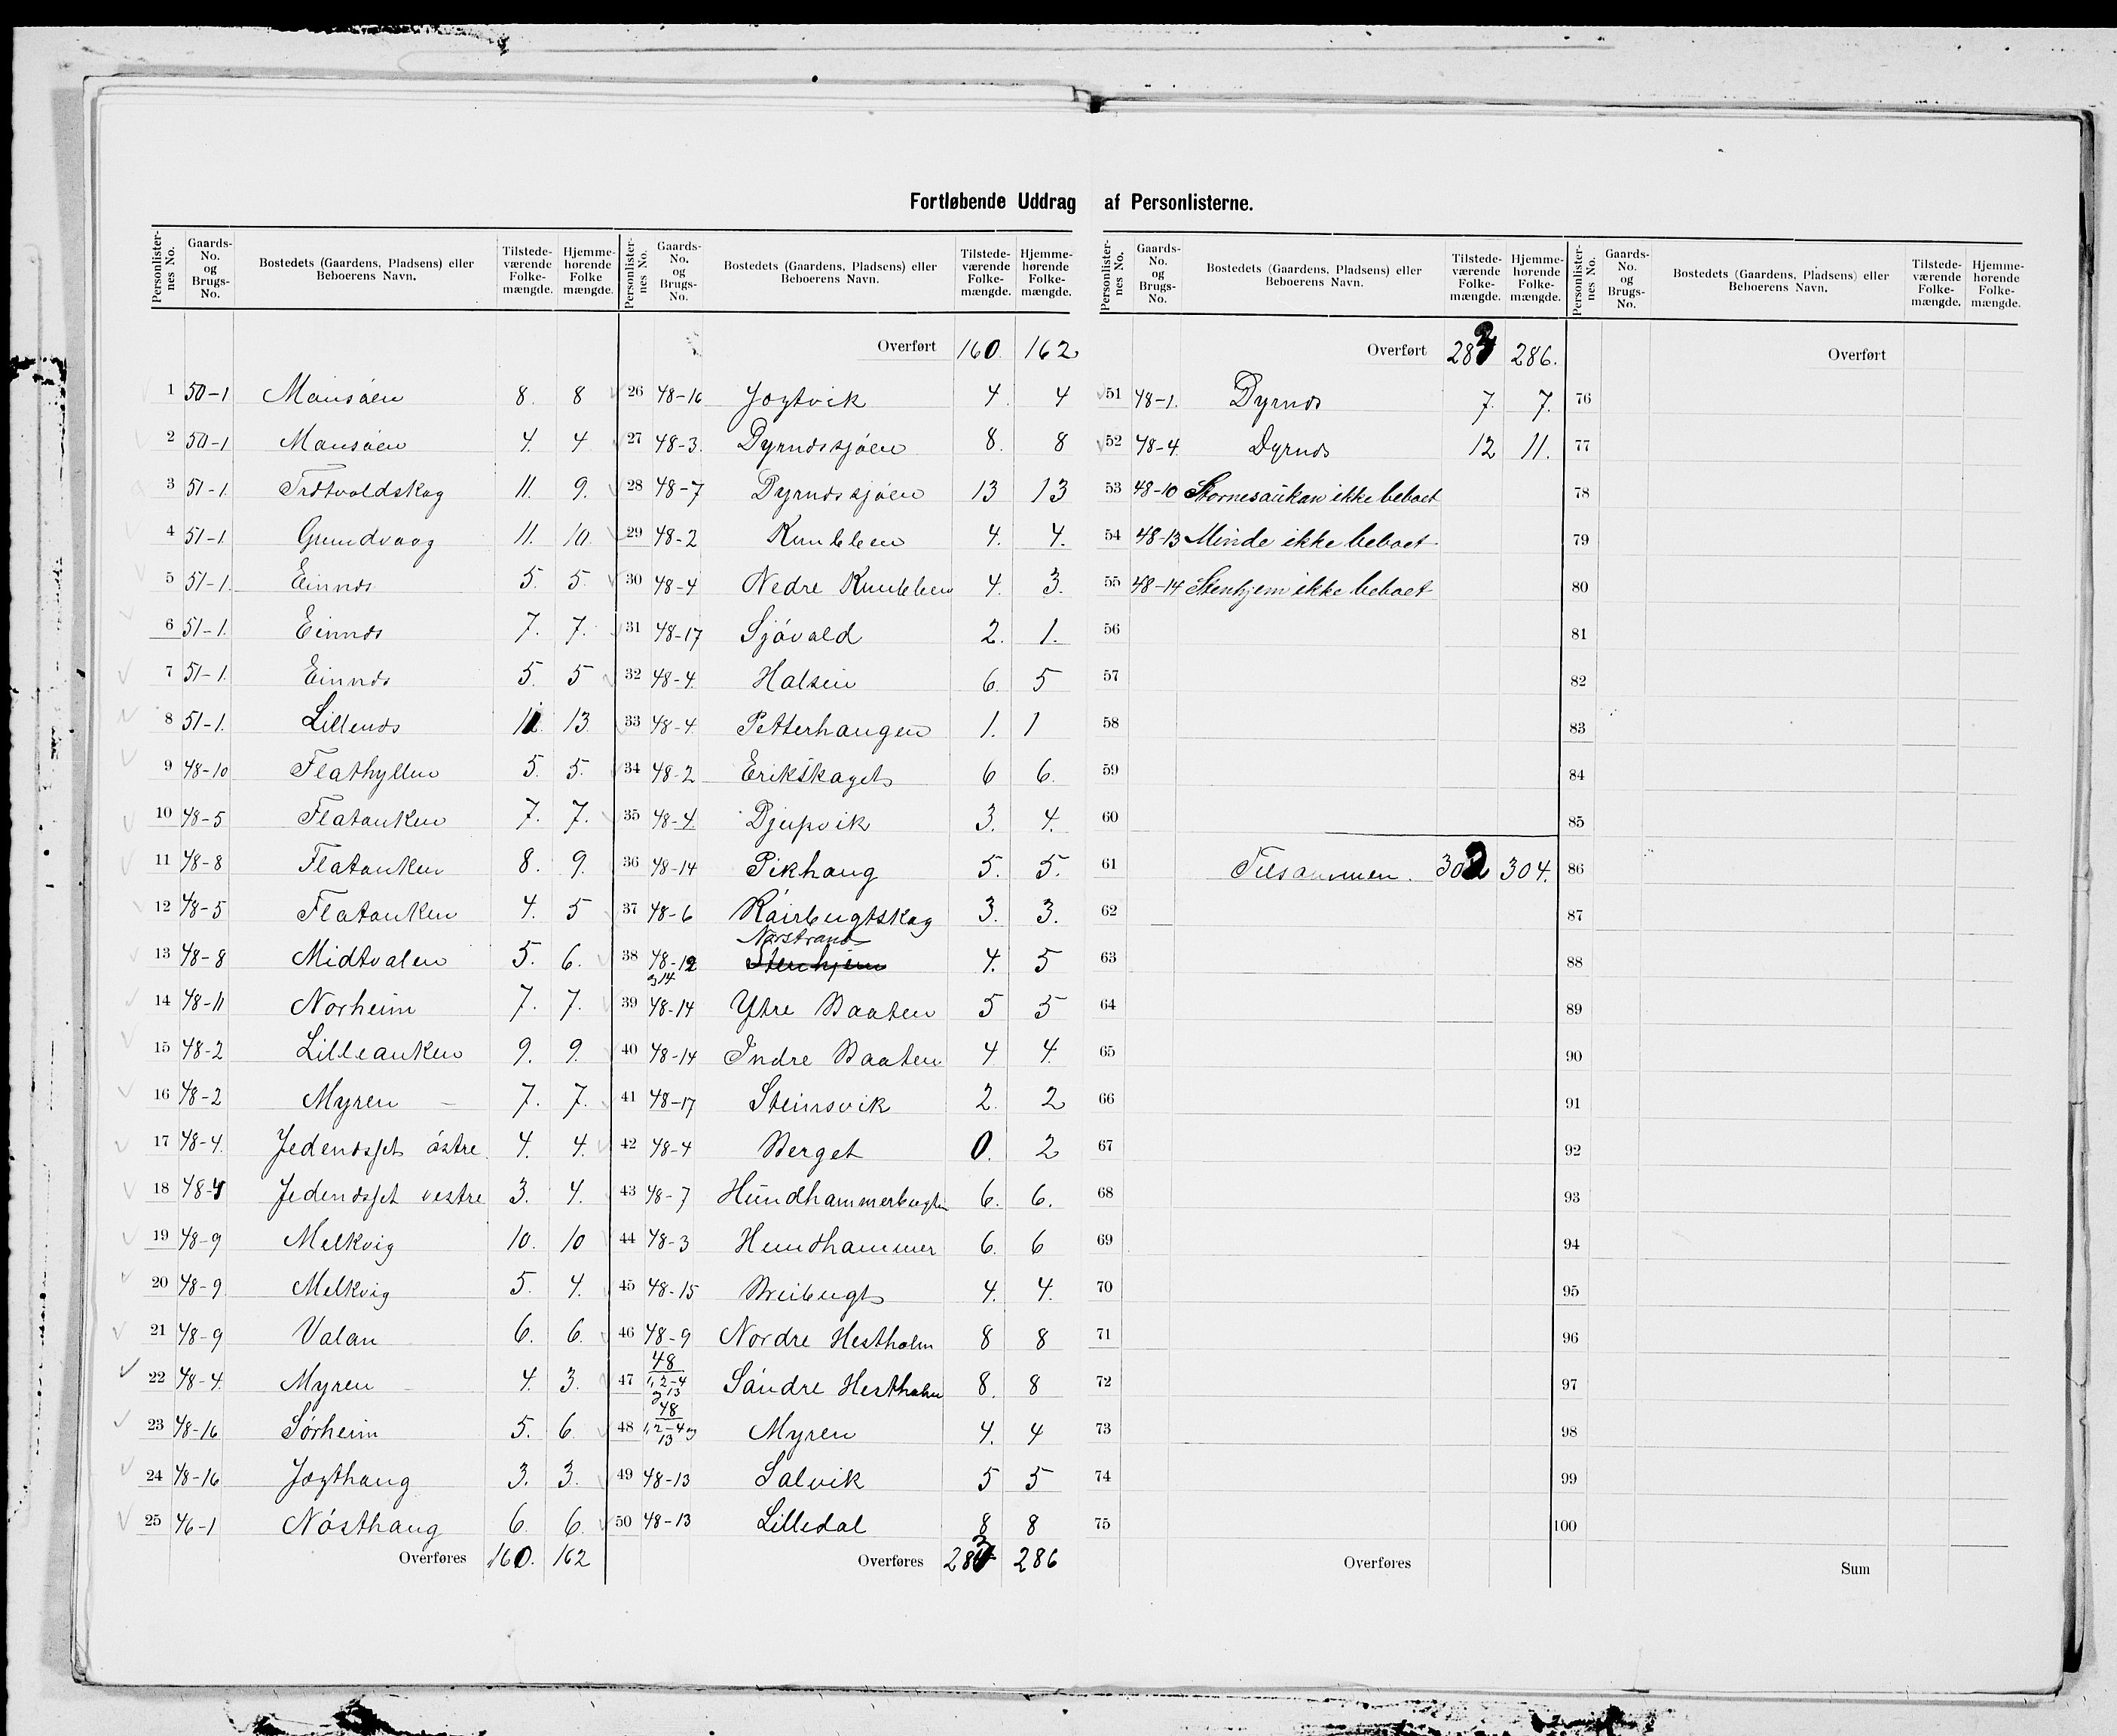 Fortløbende Uddrag af Personlisterne.
Personlisternes No. | Gaards-No. og Brugs-No. | Bostedets (Gaardens, Pladsens) eller Beboerens Navn. | Tilstedeværende Folkemængde. | Hjemmehørende Folkemængde.
1 50-1 Mausöen 8. 8
2 50-1 Mausöen 4. 4
3 51-1. 11. 9.
4 51-1. Grundvaag 11. 10.
5 51-1. Einnæs 5. 5.
6 51-1. Einnæs 7. 7.
7 51-1. Einnæs 5. 5
8 51-1. Lillenæs 11. 13.
9 48-10 Flathyllen 5. 5.
10 48-5 Flatauken 7. 7.
11 48-8 Flatauken 8. 9.
12 48-5 Flatauken 4. 5
13 48-8 Midtvalen 5. 6.
14 48-11 Norheim 7. 7.
15 48-2 Lilleauken 9. 9.
16 48-2 Myren 7. 7.
17 48-4. östre 4. 4.
18 48-4 vestre 3. 4.
19 48-9 Melkvig 10. 10
20 48-9 Melkvig 5. 4.
21 48-9 Valan 6. 6.
22 48-4. Myren 4. 3.
23 48-16 Sørheim 5. 6
24 48-16 Jægthaug 3. 3.
25 46-1 Nösthaug 6. 6.
Overføres 160. 162
Personlisternes No. | Gaards-No. og Brugs-No. | Bostedets (Gaardens, Pladsens) eller Beboerens Navn. | Tilstedeværende Folkemængde. | Hjemmehørende Folkemængde.
Overført 160. 162
26 48-16 Jægtvik 4 4
27 48-3. Dyrnæssjöen 8. 8
28 48-7 Dyrnæssjöen 13 13
29 48-2 Kunibben 4. 4.
30 48-4 Nedre Kunibben 4. 3.
31 48-17 Sjövold 2. 1.
32 48-4. Halsen 6. 5
33 48-4. Petterhaugen 1. 1
34 48-2 Erikskaget 6 6.
35 48-4 Djupvik 3. 4.
36 48-14 Pikhaug 5. 5.
37 48-6 3. 3.
Norstrand
38 48-12 Stenhjem 4. 5
og 14
39 48-14 Ytre Baaten 5 5
40 48-14 Indre Baaten 4 4.
41 48-17 Steinsvik 2. 2
42 48-4 Berget 0. 2
43 48-7 Hundhammerbugten 6. 6.
44 48-3 Hundhammer 6. 6
45 48-15 Breibugt 4. 4.
46 48-9 Nordre Hestholm 8 8
47 48 1,2-4 og 13 Söndre Hestholm 8. 8
48 48 1,2-4 og 13 Myren 4. 4
49 48-13 Salvik 5 5
50 48-13 Lilledal 8 8
Overføres 283 286
Personlisternes No. | Gaards-No. og Brugs-No. | Bostedets (Gaardens, Pladsens) eller Beboerens Navn. | Tilstedeværende Folkemængde. | Hjemmehørende Folkemængde.
Overført 283 286.
51 48-1. Dyrnæs 7. 7.
52 48-4 Dyrnæs 12 11.
53 48-10 Stornesaukan ikke beboet
54 48-13 Minde ikke beboet
55 48-14 Stenhjem ikke beboet
56
57
58
59
60
61 Tilsammen. 302 304.
62
63
64
65
66
67
68
69
70
71
72
73
74
75
Overføres
Personlisternes No. | Gaards-No. og Brugs-No. | Bostedets (Gaardens, Pladsens) eller Beboerens Navn. | Tilstedeværende Folkemængde. | Hjemmehørende Folkemængde.
Overført
76
77
78
79
80
81
82
83
84
85
86
87
88
89
90
91
92
93
94
95
96
97
98
99
100
Sum